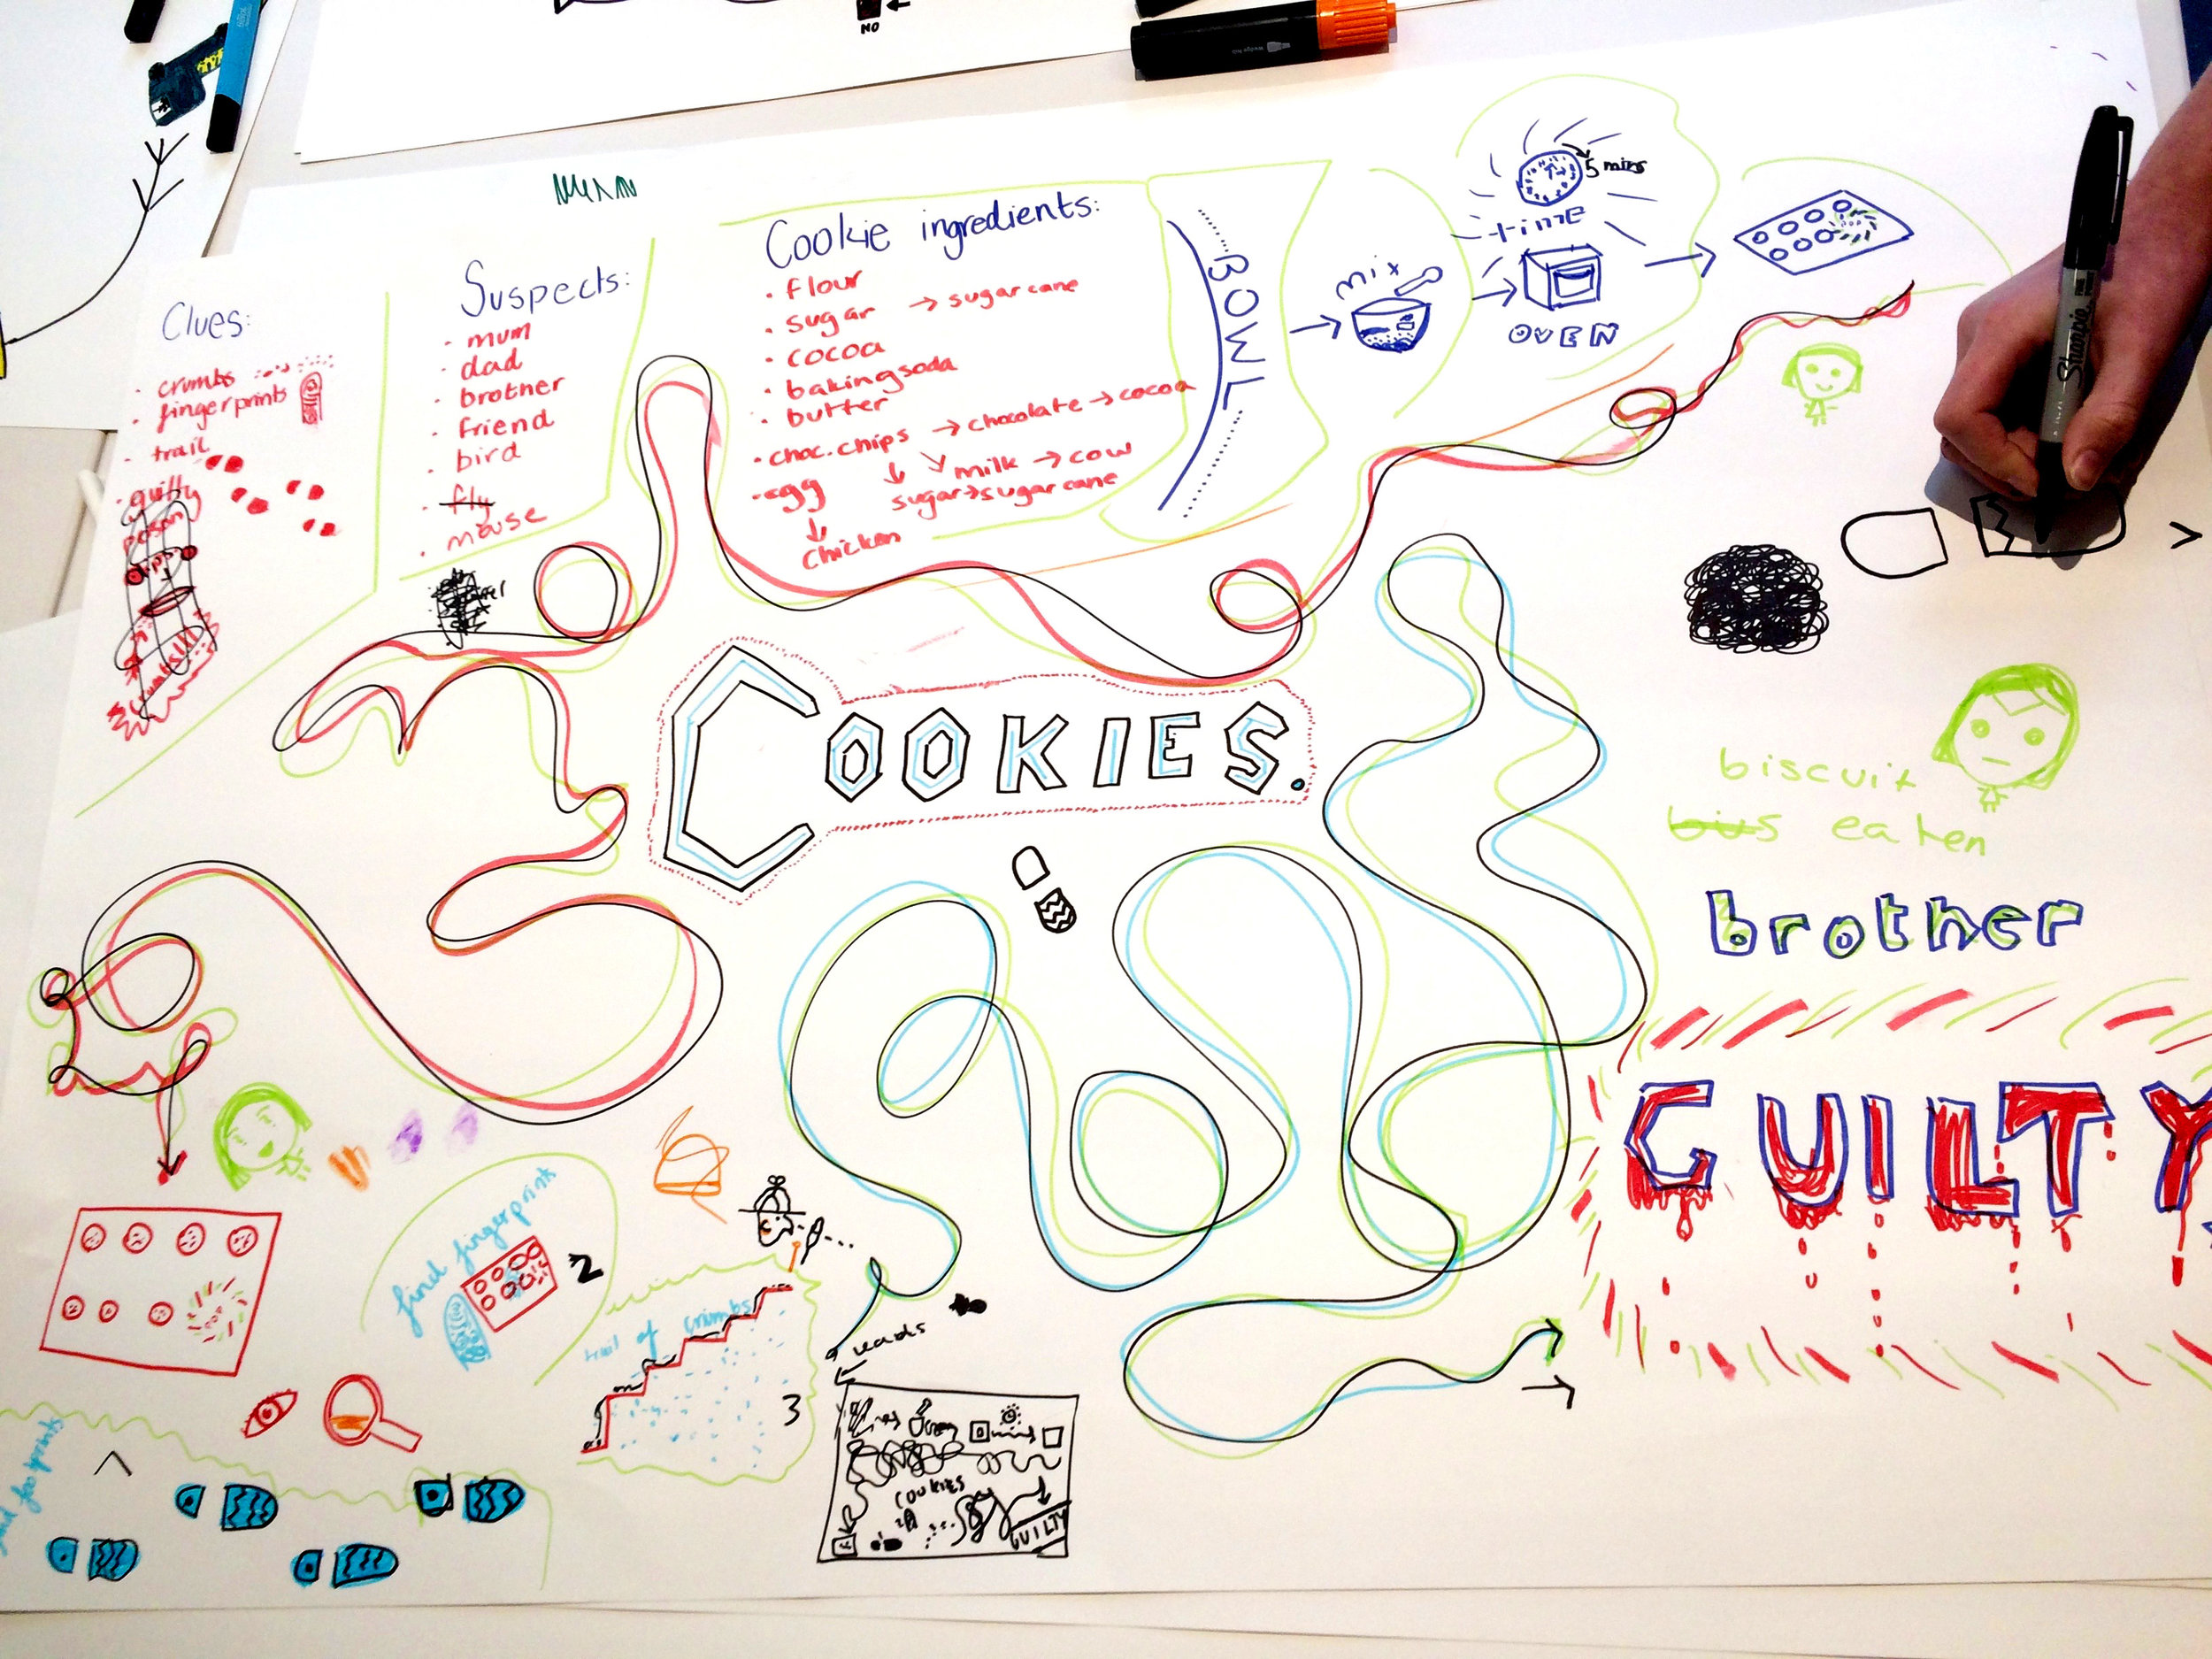 NO
Clues:
· crumbs
· fingerprints
· trail
· guilty
person
Suspects:
· mum
· dad
· brother
· friend
· bird
· fly
· mouse
Cookie ingredients:
· flour
· sugar → sugar cane
· cocoa
· baking soda
· butter
· choc. chips → chocolate → cocoa
milk → cow
sugar → sugar cane
· egg
chicken
BOWL
mix
5 mins
time
OVEN
Sharpie
COOKIES.
biscuit
bus eaten
brother
GUILTY
find fingerprints
2
trail of crumbs
3
leads
COOKIES
GUILTY
footprints